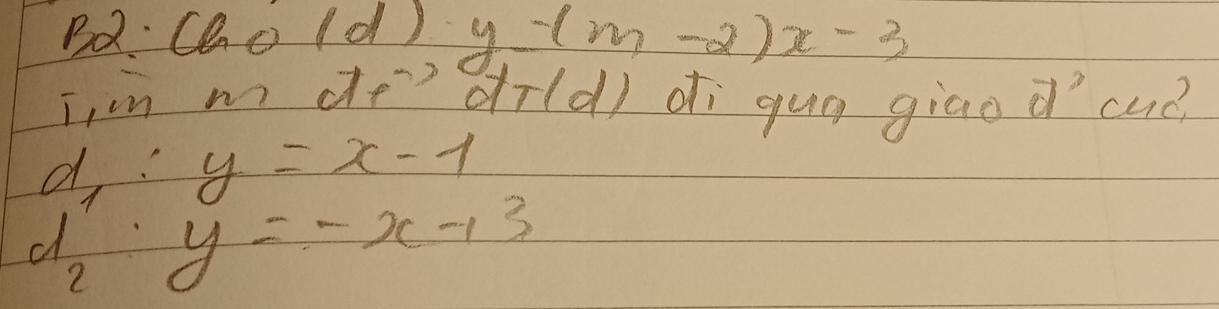 B2: Cho (d) y = (m - 2)x - 3
Tìm m để đT(d) đi qua giao đ' của
d₁ : y = x - 1
d₂ : y = -x + 3